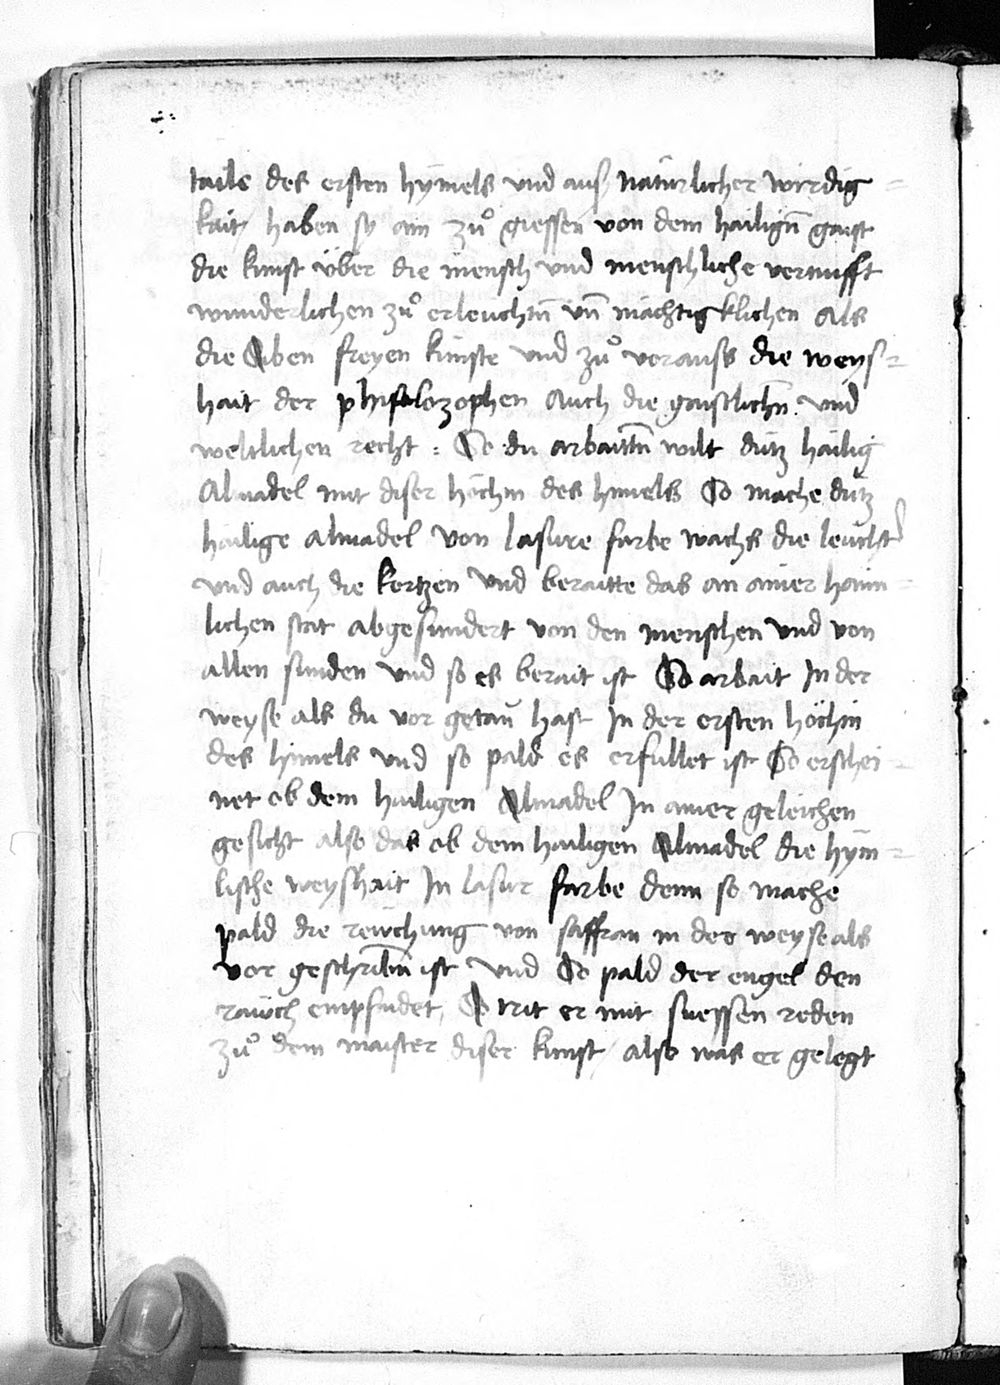 tails des ersten hymels vnd auß naturlicher wirdig =
kait / haben sy ain zuͦ giessen von dem hailigñ gaist
die kunst vber die mensch vnd menschliche vernufft
wunderlichen zuͦ erleuchtñ vñ mächtigklichen als
die siben freyen künste vnd zuͦ vorauß die weys =
hait der phisolozophen auch die gaistlichñ vnd
weltlichen recht : So du arbaittñ wilt ditz hailig
Almadel mit diser höchin des himels So mache ditz
hailige almadel von lasure farbe wachs die leucht
vnd auch die kertzen vnd beraitte das an ainer haim =
lichen stat abgesundert von den menschen vnd von
allen sunden vnd so es berait ist So arbait In der
weyse als du vor getan hast In der ersten höchin
des himels vnd so pald es erfullet ist So erschei =
net ob dem hailigen Almadel In ainer geleichen
gesicht also das ob dem hailigen Almadel die hym =
lische weyshait In lasur farbe denn so mache
pald die rewchung von saffran in der weyse als
vor geschribñ ist vnd So pald der engel den
rauch empfindet, So trit er mit suessen reden
zuͦ dem maister diser kunst / also was er gelegt